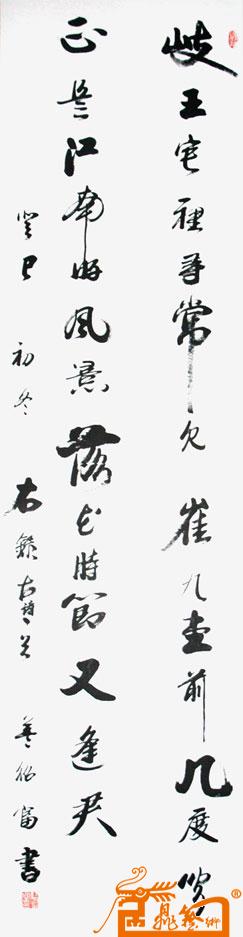 岐王宅裡尋常見崔九堂前几度聞
正是江南好風景落花時節又逢君
癸巳初冬右錄古詩一首姜紹富書